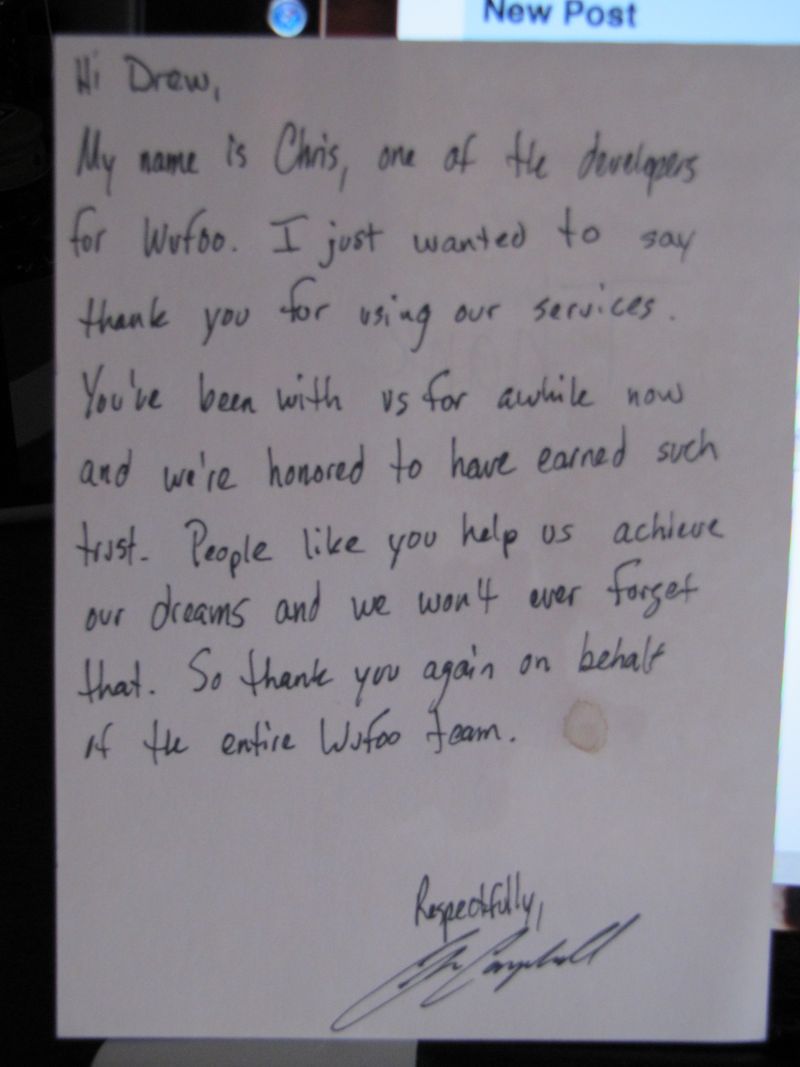 New Post
Hi Drew,
My name is Chris, one of the developers
for Wufoo. I just wanted to say
thank you for using our services.
You've been with us for awhile now
and we're honored to have earned such
trust. People like you help us achieve
our dreams and we won't ever forget
that. So thank you again on behalf
of the entire Wufoo team.
Respectfully,
Chris Campbell